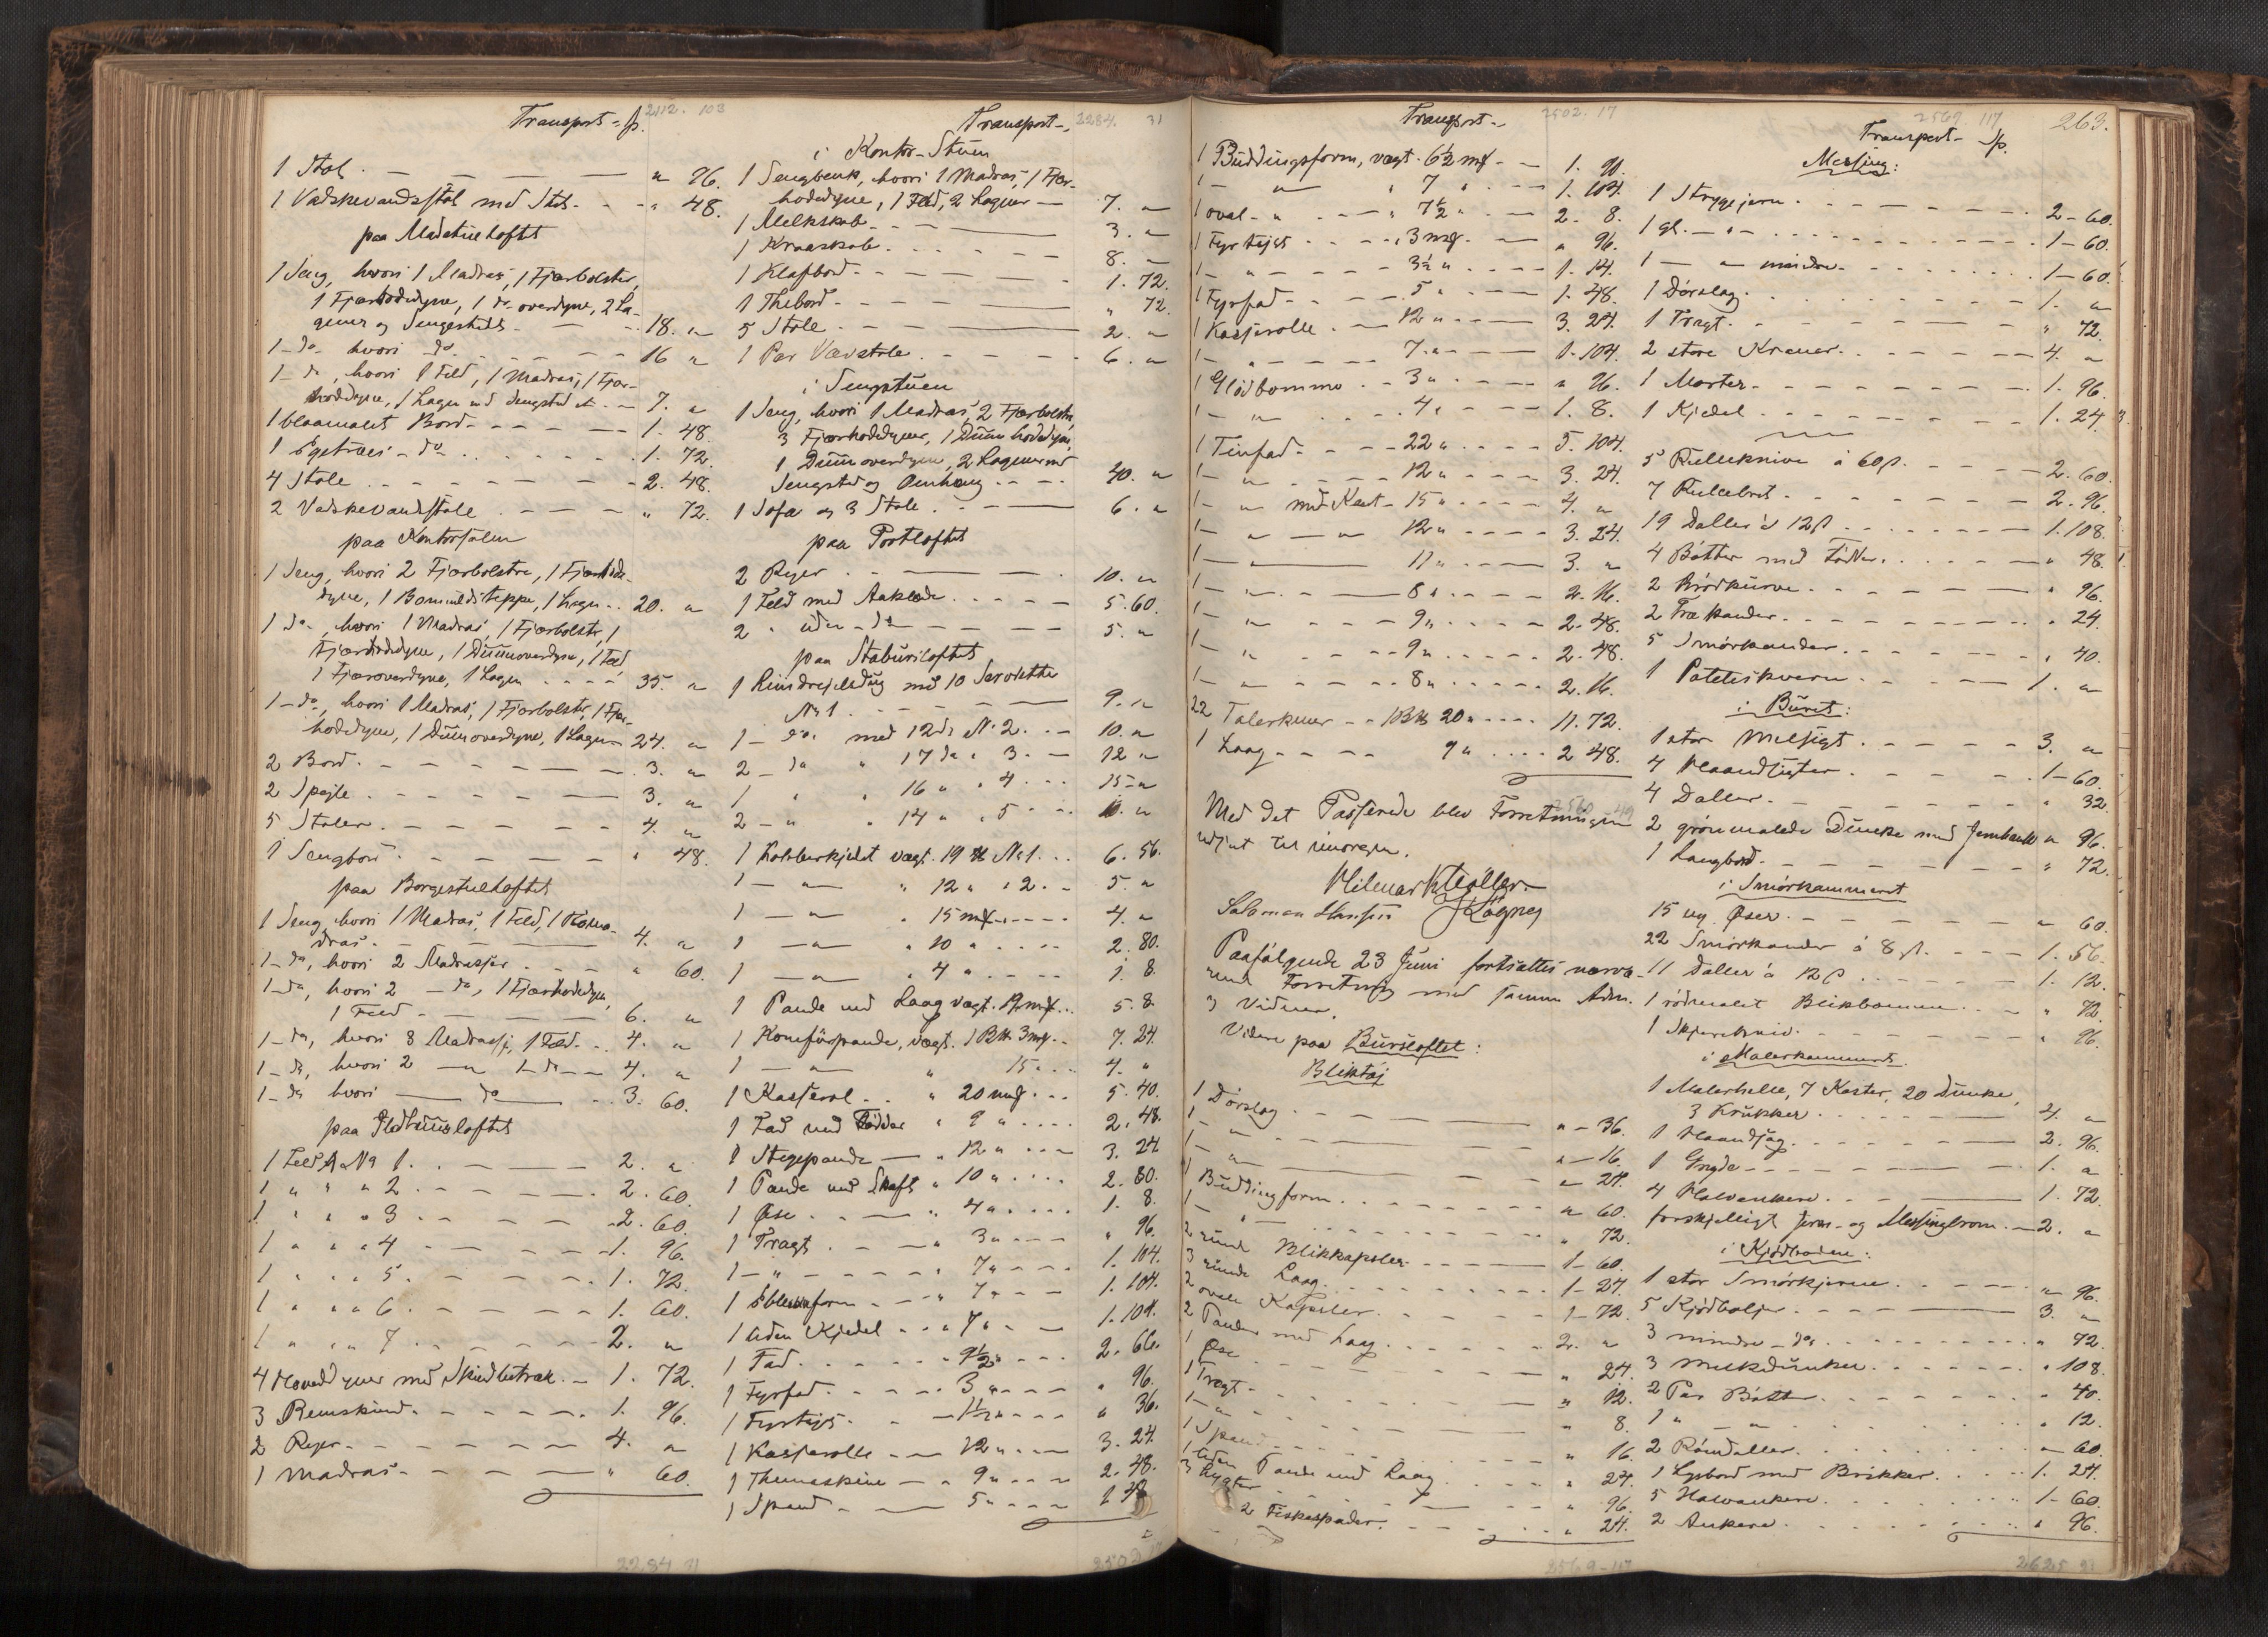 Transport - Sp. 2112. 103
1 Stol . — — — — " 96.
1 Vadskevandsstol med Stet - - " 48.
paa Madstueloftet
1 Seng, hvori 1 Madras, 1 Fjærbolster,
1 Fjærhodedyne, 1 do overdyne, 2 La-
gener og Sengested - — 18. "
1 - do hvori do. — — 16 "
1 - do, hvori 1 Feld, 1 Madras, 1 Fjær-
hoddyne, 1 Lagen med Sengested - 7. "
1 blaamalet Bord - - - - 1. 48.
1 Egetræes - do . . . . 1. 72.
4 Stole . . - - - - 2. 48.
2 Vadskevandsstole . - - - " 72.
paa Kontorsalen
1 Seng, hvori 2 Fjærbolstre, 1 Fjærhode-
dyne, 1 Bomuldsteppe, 1 Lagen . . 20. "
1 do, hvori 1 Madras, 1 Fjærbolster, 1
Fjærhodedyne, 1 Duunoverdyne, 1 Feld
1 Fjæroverdyne, 1 Lagen - - - - 35. "
1 - do, hvori 1 Madras, 1 Fjærbolster, 1 Fjær-
hodedyne, 1 Duunoverdyne, 1 Lagen - 24. "
2 Bord . - - - - - 3. "
2 Speile . - - - - 3. "
5 Stoler . - - - - 4. "
1 Sengbord . - - - - " 48.
paa Borgestueloftet
1 Seng hvori 1 Madras, 1 Feld,
dras . - — — 4. "
1 - do, hvori 2 Madrasser . . - - " 60.
1 - do, hvori 2 - do, 1 Fjærhodedyne,
1 Feld - — — 6. "
1 - do, hvori 3 Madrasser, 1 Feld . . 4. "
1 - do, hvori 2 - " 1 - do - - 4. "
1 - do hvori — do — . . 3. 60.
paa Ildhuusloftet
1 Feld A No 1 . . - — - 2. "
1 " " " 2 . - - - - 2. 60.
1 " " " 3 . - - - - 2. 60.
1 " " " 4 - - - - 1. 96.
1 " " " 5 . - - - - 1. 72.
1 " " " 6 . - - - - 1. 60.
1 " " " 7 . - - - - 2. "
4 Hoveddyner med Skindbetræk . - 1. 72.
3 Remskind . - - - - 1. 96.
2 Ryer - - - - - 4. "
1 Madras - - - - - " 60.
2284 31
Transport - 2284. 31
i Kontor-Stuen
1 Sengbenk, hvori 1 Madras, 1 Fjær-
hodedyne, 1 Feld, 2 Lagner — 7. "
1 Melkskab - - - — 3. "
1 Kraaskab . - - - - 8. "
1 Klafbord - - - - - 1. 72.
1 Thebord - - - - - " 72.
5 Stole . - - — 2. "
1 Par Vævstole . - - - - 6. "
i Sengstuen
1 Seng, hvori 1 Madras, 2 Fjærbolstre,
3 Fjærhodedyner, 1 Duun hodedyne,
1 Duunoverdyne, 2 Lagener med
Sengsted og Omhæng - - - . 40. "
1 Sofa og 3 Stole . - - — 6. "
paa Portloftet
2 Ryer . - — 10. "
1 Feld med Aaklæde . . . . 5. 60.
2 " uden - do — 5. "
paa Stabursloftet
1 Duug med 10 Servietter
No 1 . — - - - 9. "
1 - do. med 12 do No 2 . . - 10. "
2 - do " 17 do " 3 . - 12 "
1 " " 16 " " 4 . . . 15 - "
2 - " " 14 " " 5 " - - 10. "
1 Kobberkjedel vægt. 19 ℔ No 1 . . . 6. 56.
1 — " " 12 " " 2 . - 5. "
1 — " " 15 mk . . . . 4. "
1 — " " 10 " . . . . 2. 80.
1 — " " 4 " . . . . 1. 8.
1 Pande med Laag vægt. 19 mk . . . 5. 8.
1 , vægt. 1 B℔ 3 mk . . 7. 24.
1 — " " 15 " . . . 4. "
1 Kasserol . . " 20 mk . . . 5. 40.
1 Fad med Fødder " 9 " . . . . 2. 48.
1 Stegepande — " 12 " . . . 3. 24.
1 Pande med Skaft " 10 " . . . . 2. 80.
1 Øse . . — " 4 " . . . . 1. 8.
1 Tragt . — " 3 " . . . . " 96.
1 - " - - - - " 7 " . . . 1. 104.
1 Ebleform . — " 7 " . . . 1. 104.
1 liden Kjedel . . " 7 " . . 1. 104.
1 Fad . . . . . 9½ " . . . 2. 66.
1 Fyrfad . . . . . 3 " . . . " 96.
1 Fyrtøys . . - 1½ " . . . " 36.
1 Kasserolle — 12 " . . . 3. 24.
1 Themaskine — 9 " . . . 2. 48.
1 Spand . — 5 " . . . 1 48
2502 17
Transport - 2502. 17
1 Buddingsform, vægt. 6½ mk - - 1. 90.
1 — " " 7 " . . . 1. 104.
1 oval - " - - - " 7½ " . . - 2. 8.
1 Fyrtøjet . . . . " 3 mk . — " 96.
1 - " - - - - 3½ " . . . 1. 14.
1 Fyrfad - - - - 5 " . . — 1. 48.
1 Kasserolle . - - 12 " . . — 3. 24.
1 - " - - - 7 " . . — 1. 104.
1 Glødbomme . - 3 " . . — " 96.
1 - " - - - - 4 " . . . 1. 8.
1 Tinfad - - - - 22 " . . . . 5. 104.
1 - " - - - - 12 " . . . 3. 24.
1 - " med Kant - 15 " . . . . 4. "
1 - " — " 12 " . . . 3. 24.
1 - " — 11 " . . . 3. "
1 - " — 8 " . . . . 2. 16.
1 - " — 9 " . . . . 2. 48.
1 - " - - - - 9 " . . . . 2. 48.
1 - " - - - - 8 " . . . . 2. 16.
22 Talerkener - - 1 B℔ 20 " . . . . 11. 72.
1 Laag . - - - 9 " . . . . 2 48.
2560 49
Med det Passerede blev Forretningen
udsat til imorgen.
Salomon Hansen
Paafølgende 23 Juni fortsattes nærvæ-
rende Forretning med samme Adm.
3 Vidner.
Videre paa Bursloftet :
Bliktøj
1 Dørslag . - - - — " - 36.
1 - " - - — " - 16.
1 - " — " - 24.
1 Buddingform . . . . . . " 60.
1 - " . . . . . . . " 72.
2 runde Blikkapsler - - - 1 - 60.
3 runde Laag . . . . . . . 1 - 24.
2 ovale Kapsler . . - - - 1 - 72.
2 Pander med Laag . . . . . 2. "
1 Øse . . . - - - - " 24.
1 Tragt . - - - - - " 12.
1 - " . . . . . . " 8.
1 Spand . . . . . . " 16.
1 liden Pande med Laag . . . . " 24.
3 Lygter . . — - " 96.
2 Fiskespader . . - - - . " 24.
2569 - 117
2569. 117 263.
Transport - Sp.
Messing :
1 Strygejern . . . - - - — 2 - 60.
1 gl. — " - . . . . . . . 1 - 60.
1 — " mindre . . . . . . . 1 - 60.
1 Dørslag . . . . . . . . 1. "
1 Tragt . - - - - - " 72.
2 store Kraner . . - - - 4. "
1 Morter . - - - - - 1. 96.
1 Kjedel . . . . - - - 1. 24
5 Rulleknive à 60 ß . - - - - 2. 60.
7 Rullebret . . . . . . . 2. 96.
19 Daller à 12 ß . . . . . . 1. 108.
4 Bøtter med Fødder . . . . . " 48.
2 Brødkurve . - - - - " 96.
2 Trækander . . . . . . . " 24.
5 Smørkander . . . . . . " 40.
1 Poteteskværn . . . . . . 1. "
i Buret :
1 stor Melsigt . . . . . . 3. "
4 Haandsigter . . . . . . 1 - 60.
4 Daller . . - - - - " 32
2 grønmalede Dunke med Jernbaand " 96.
1 Langbord . - - - - - " 72.
i Smørkammeret
15 ny Øser . - - - - - " 60.
22 Smørkander à 8 ß . . . . 1. 56.
11 Daller à 12 ß . . . . . . 1. 12.
1 rødmalet Blikbomme . . . . " 72.
1 Skjærekniv . . . . . . " 96.
i Malerkammeret .
1 Malerhelle, 7 Koster, 20 Dunke,
3 Krukker . . . . — 4. "
1 Haandsag . . . . . . . 2. 96.
1 Gryde - - - - - 1. "
4 Halvankere . . . — 1. 72
forskjelligt Jern- og Messingkram . - 2. "
i Kjødboden :
1 stor Smørkjerne . . . . . " 96.
5 Kjødbaljer . . . — 3. "
3 mindre - do . . . . . . " 72.
3 Melkedunker . . . . . . " 108.
2 Par Bøtter . . . . . . " 40.
1 " - " . . . . . . " 12.
2 Rømdaller . . . . . . " 60.
1 Lysbord med Brikker . . . . 1. 24.
5 Halvankere . . . . . . 1 - 60.
2 Ankere . . . . . . . " 96.
2625 91